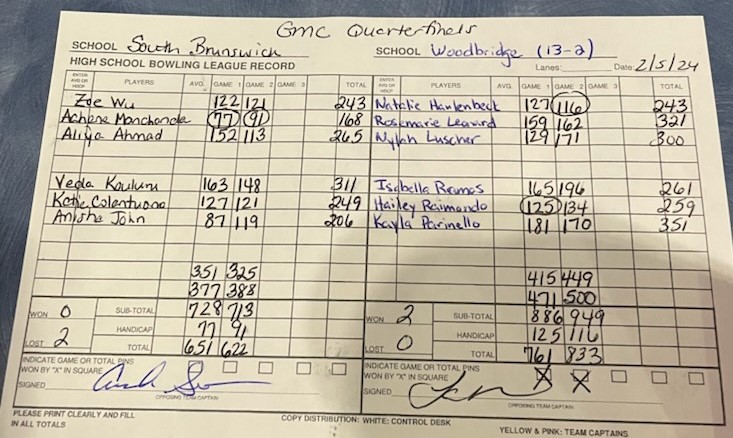 GMC Quarterfinals
SCHOOL South Brunswick SCHOOL Woodbridge (13-2)
HIGH SCHOOL BOWLING LEAGUE RECORD Lanes: Date: 2/5/24
ENTER AVG OR HDCP PLAYERS AVG. GAME 1 GAME 2 GAME 3 TOTAL ENTER AVG OR HDCP PLAYERS AVG. GAME 1 GAME 2 GAME 3 TOTAL
Zoe Wu 122 121 243 Natalie Hanlenbeck 127 116 243
Achana Manchanda 77 91 168 Rosemarie Leonard 159 162 321
Aliya Ahmad 152 113 265 Nylah Luscher 129 171 300
Veda Koulury 163 148 311 Isabella Ramos 165 196 261
Katie Colantuono 127 121 249 Hailey Raimondo 125 134 259
Anisha John 87 119 206 Kayla Parinello 181 170 351
351 325 415 449
377 388 471 500
WON 0 SUB-TOTAL 728 713 WON 2 SUB-TOTAL 886 949
HANDICAP 77 91 HANDICAP 125 116
LOST 2 TOTAL 651 622 LOST 0 TOTAL 761 833
INDICATE GAME OR TOTAL PINS WON BY "X" IN SQUARE INDICATE GAME OR TOTAL PINS WON BY "X" IN SQUARE X X
SIGNED SIGNED
OPPOSING TEAM CAPTAIN OPPOSING TEAM CAPTAIN
PLEASE PRINT CLEARLY AND FILL IN ALL TOTALS COPY DISTRIBUTION: WHITE: CONTROL DESK YELLOW & PINK: TEAM CAPTAINS